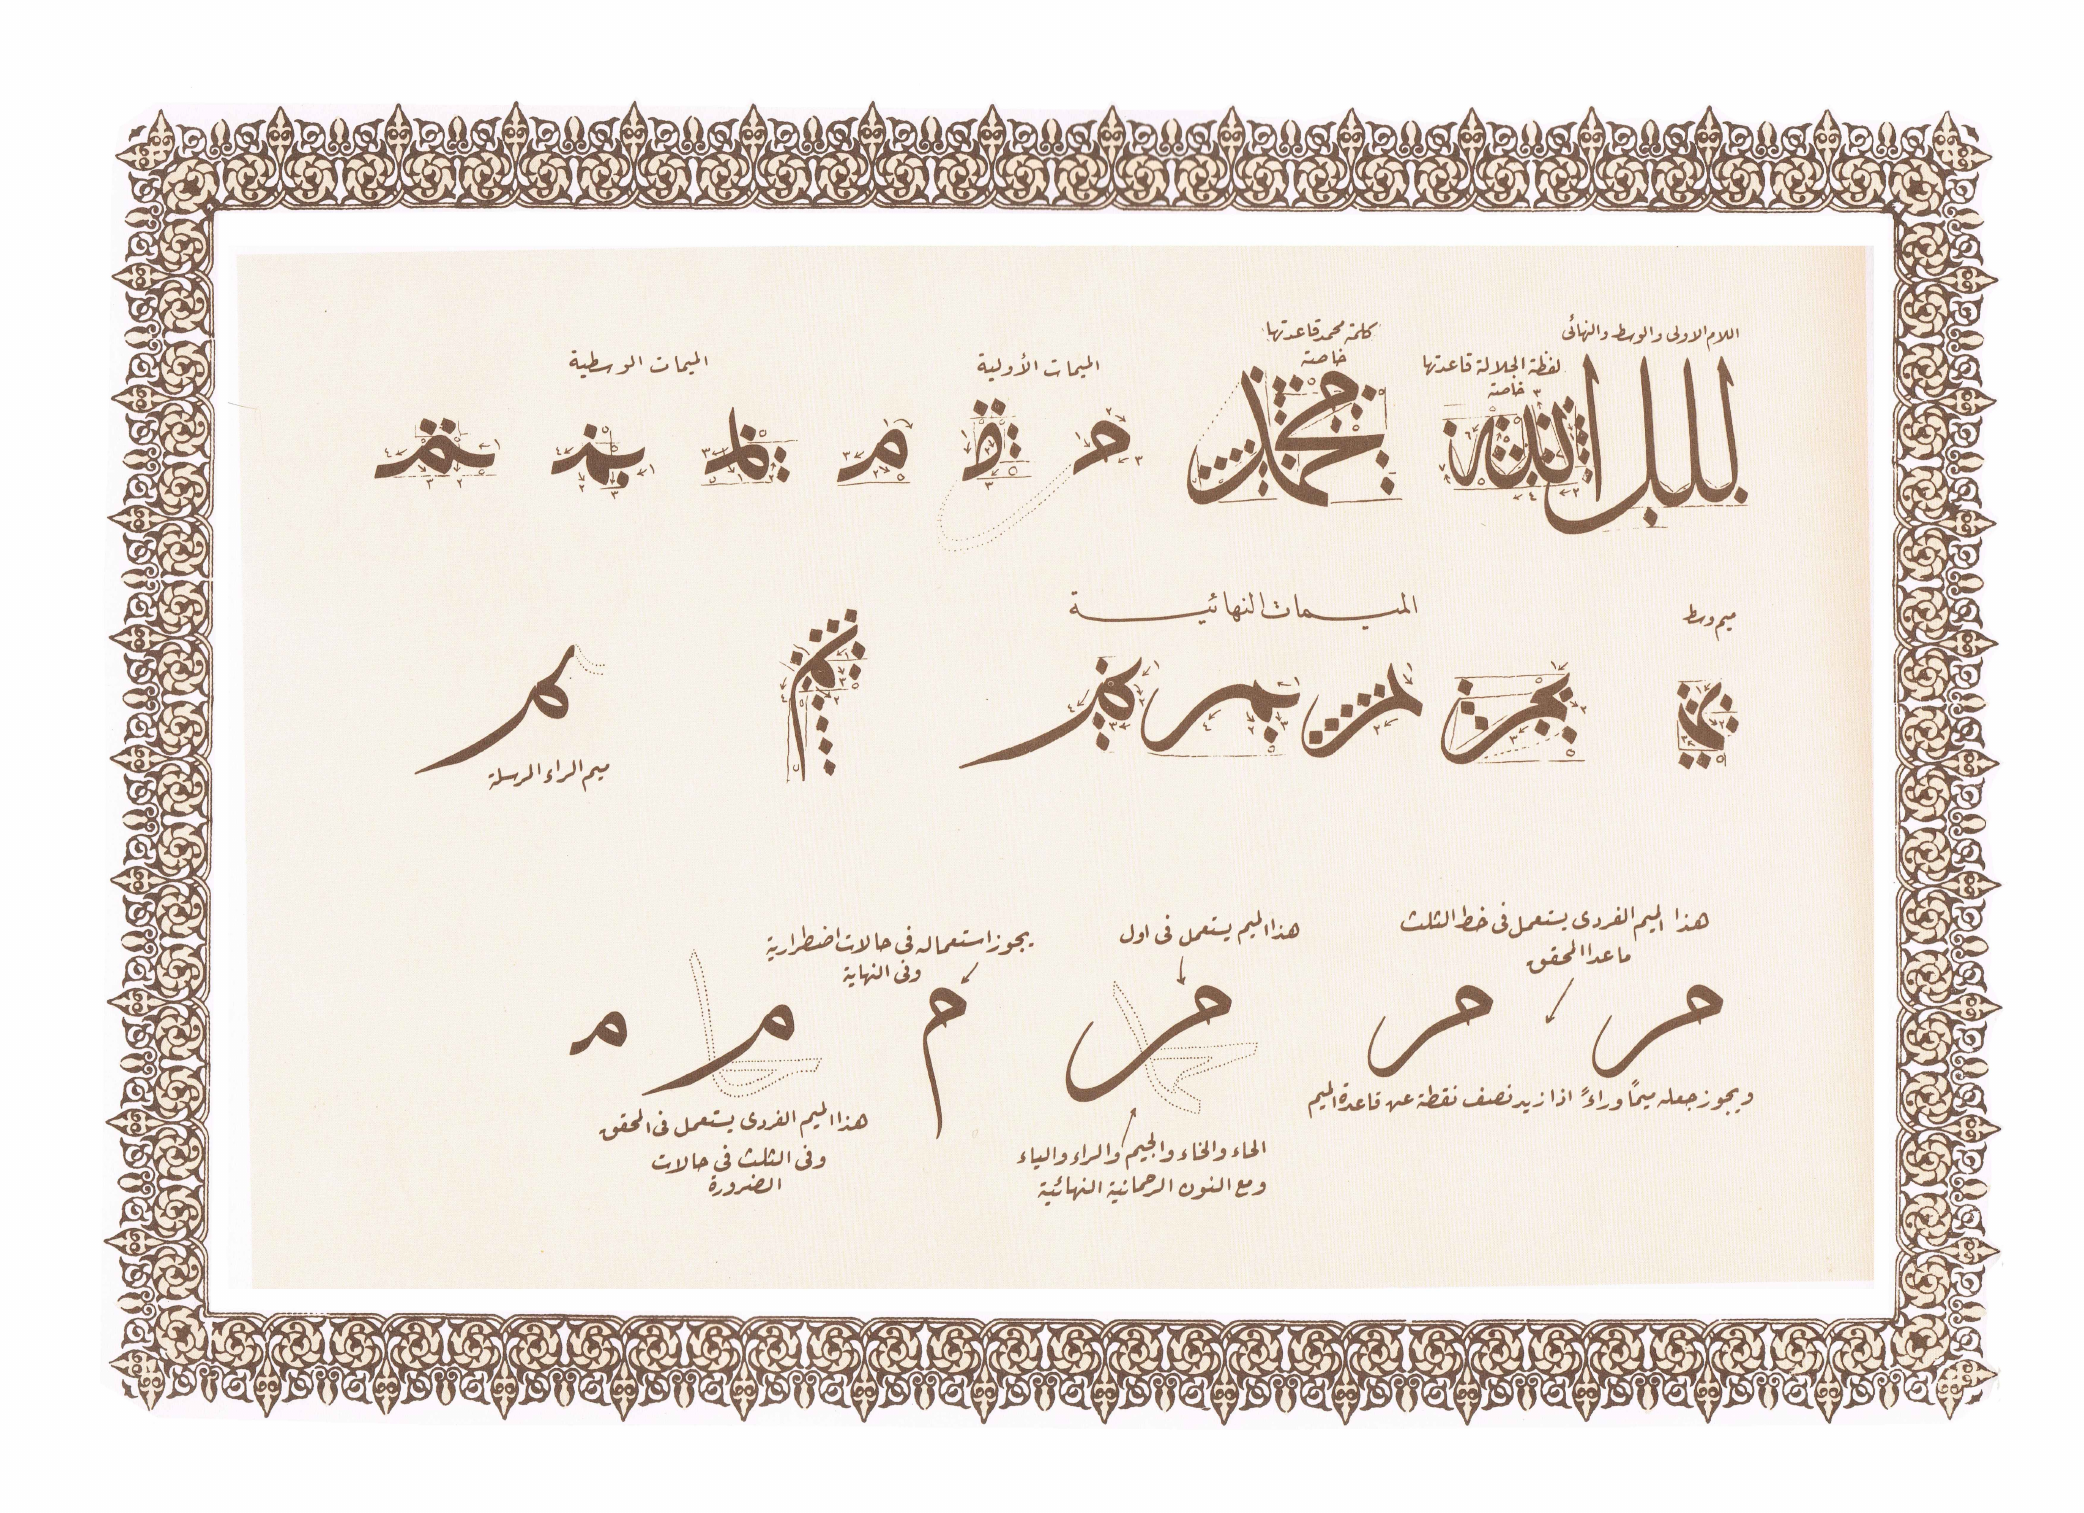 اللام الاولى والوسط والنهائى
للل
لفظة الجلالة قاعدتها
خاصة
الله
كلمة محمد قاعدتها
خاصة
محمد
الميمات الأولية
الميمات الوسطية
ميم وسط
الميمات النهائية
ميم الراء المرسلة
هذا الميم الفردى يستعمل فى خط الثلث
ما عدا المحقق
ويجوز جعله ميماً وراءً اذا زيد نصف نقطة عن قاعدة الميم
هذا الميم يستعمل فى اول
الحاء والخاء والجيم والراء والياء
ومع النون الرحمانية النهائية
يجوز استعماله فى حالات اضطرارية
وفى النهاية
هذا الميم الفردى يستعمل فى المحقق
وفى الثلث فى حالات
الضرورة